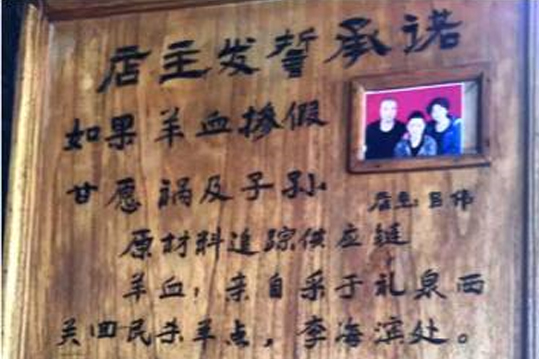 店主发誓承诺
如果羊血掺假
甘愿祸及子孙
店主:吕伟
原材料追踪供应链
羊血:亲自采于礼泉西
关回民杀羊点,李海滨处。